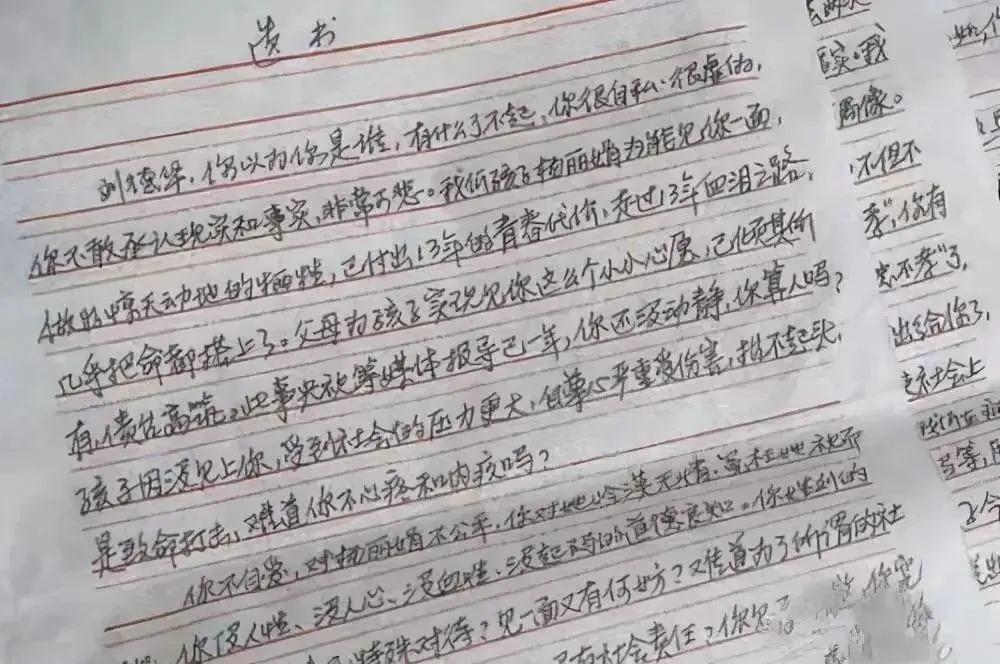 遗书
刘德华,你以为你是谁,有什么了不起,你很自私、很虚伪,
你不敢承认现实和事实,非常可悲。我低孩子杨丽娟为能见你一面,
做的惊天动地的牺牲,已付出13年的青春代价,走过13年血泪之路,
几乎把命都搭上了。父母为孩子实现见你这么个小小心愿,已倾其所
有,债台高筑。此事央视等媒体报导已一年,你还没动静,你算人吗?
孩子因没见上你,受到社会的压力更大,自尊心严重受伤害,抬不起头,
是致命打击,难道你不心疼和内疚吗?
你不自爱,对杨丽娟不公平,你对她冷漠无情,
你没人性、没人心、没血性、没起码的道德良知。你
特殊对待?见一面又有何妨?难道为了所谓的社
社会责任?你见
实。我
偶像。
不但不
孝,你有
忠不孝了,
出给你了,
社会上